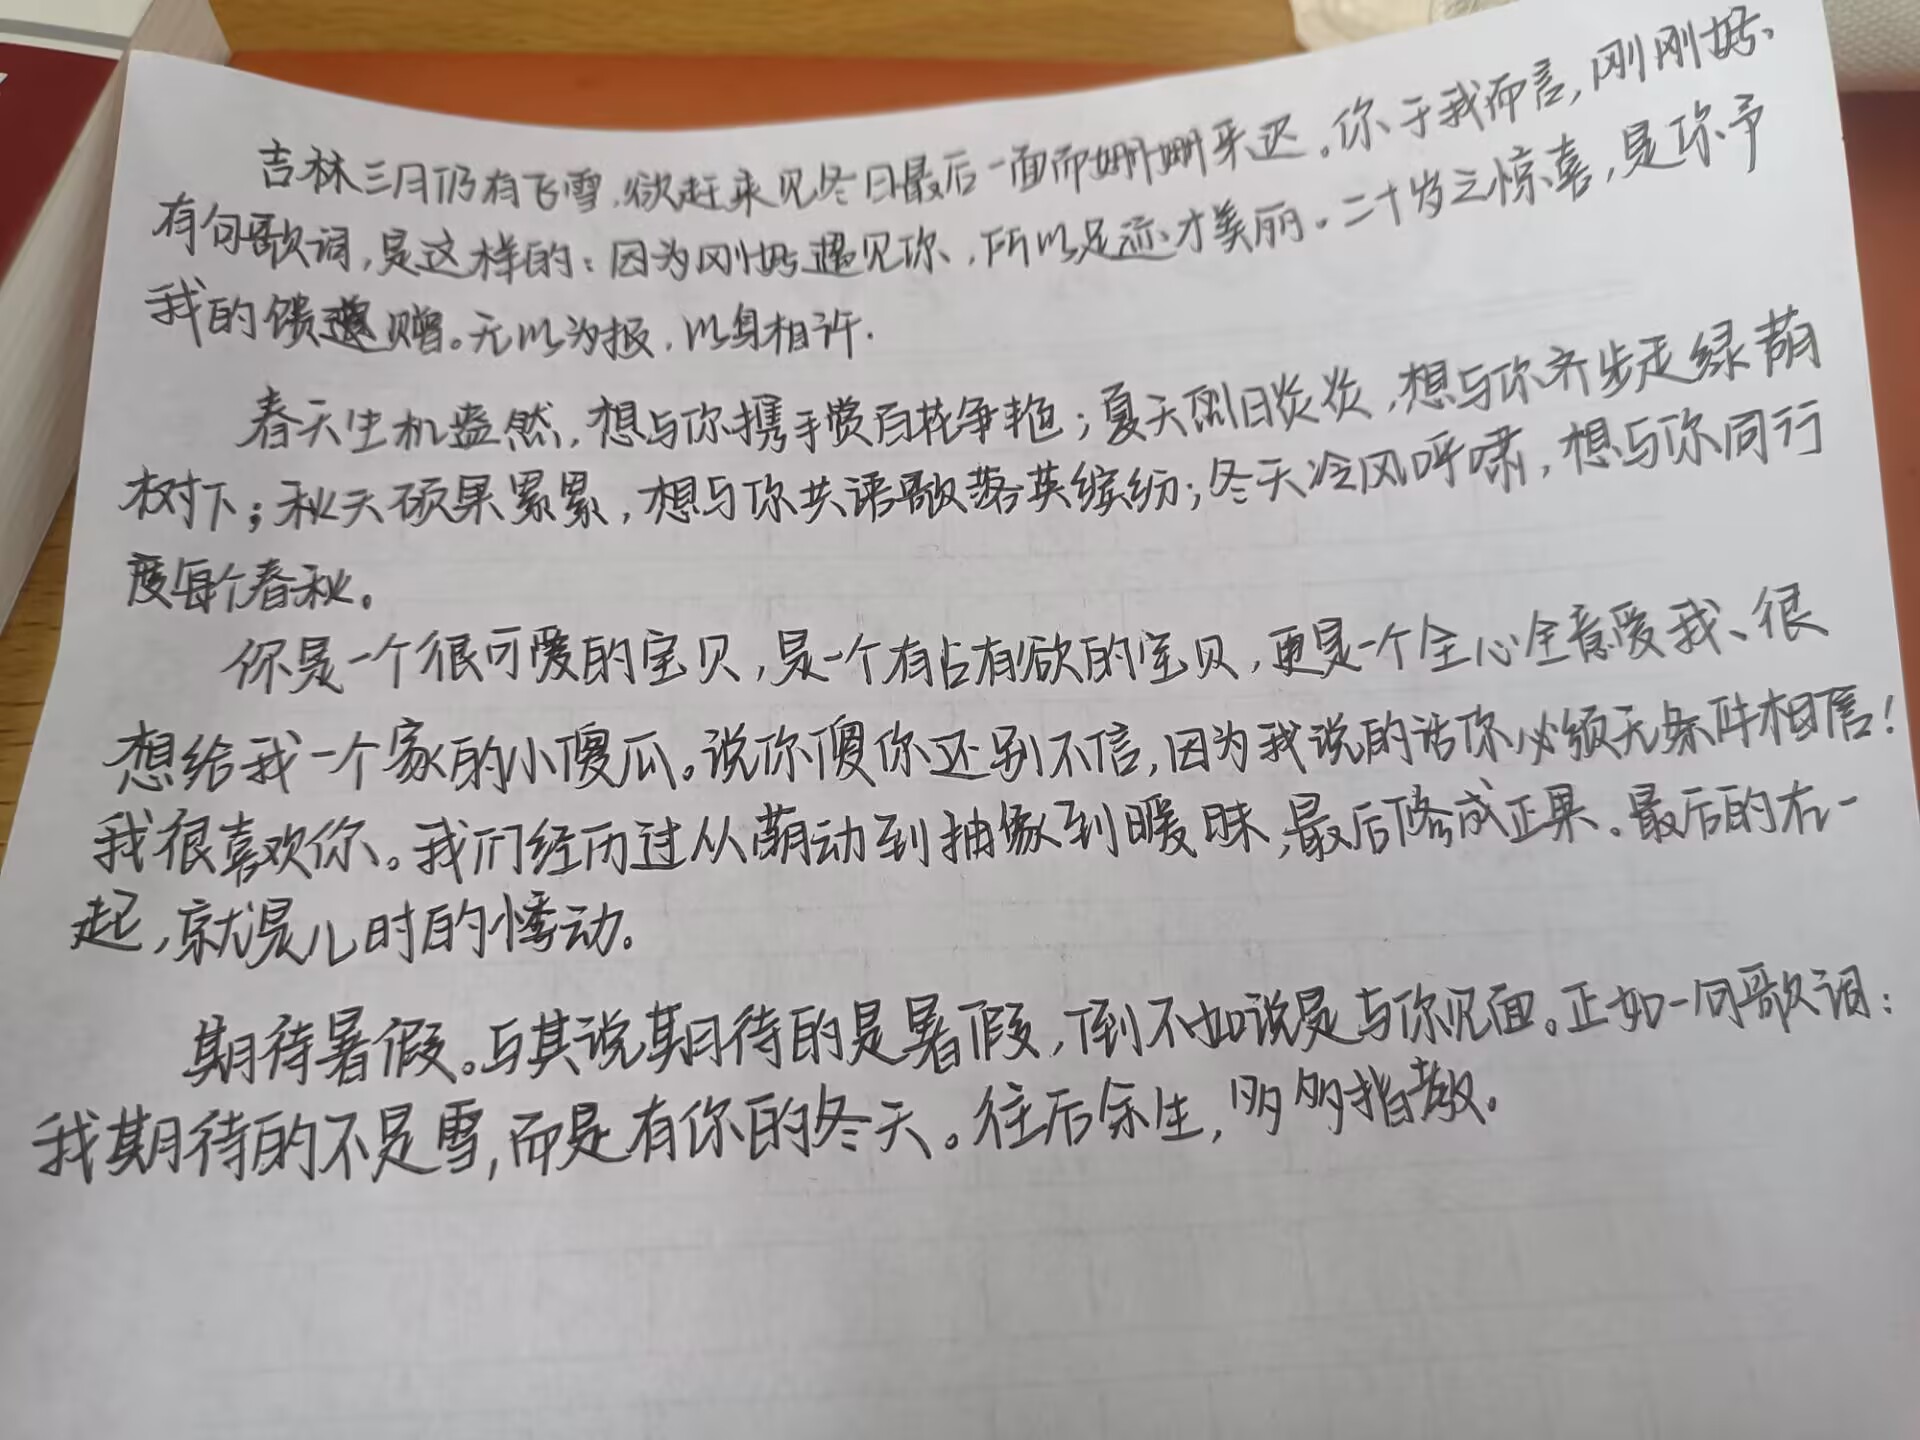 吉林三月仍有飞雪,欲赶来见冬日最后一面而姗姗来迟。你于我而言,刚刚好、
有句歌词,是这样的:因为刚好遇见你,所以足迹才美丽。二十岁之惊喜,是你予
我的馈赠。无以为报,以身相许.
春天生机盎然,想与你携手赏百花争艳;夏天烈日炎炎,想与你齐步走绿荫
树下;秋天硕果累累,想与你共语歌落英缤纷;冬天冷风呼啸,想与你同行
度每个春秋。
你是一个很可爱的宝贝,是一个有占有欲的宝贝,更是一个全心全意爱我、很
想给我一个家的小傻瓜。说你傻你还别不信,因为我说的话你必须无条件相信!
我很喜欢你。我们经历过从萌动到抽象到暧昧,最后修成正果。最后的在一
起,就是儿时的悸动。
期待暑假。与其说期待的是暑假,倒不如说是与你见面。正如一句歌词:
我期待的不是雪,而是有你的冬天。往后余生,多多指教。